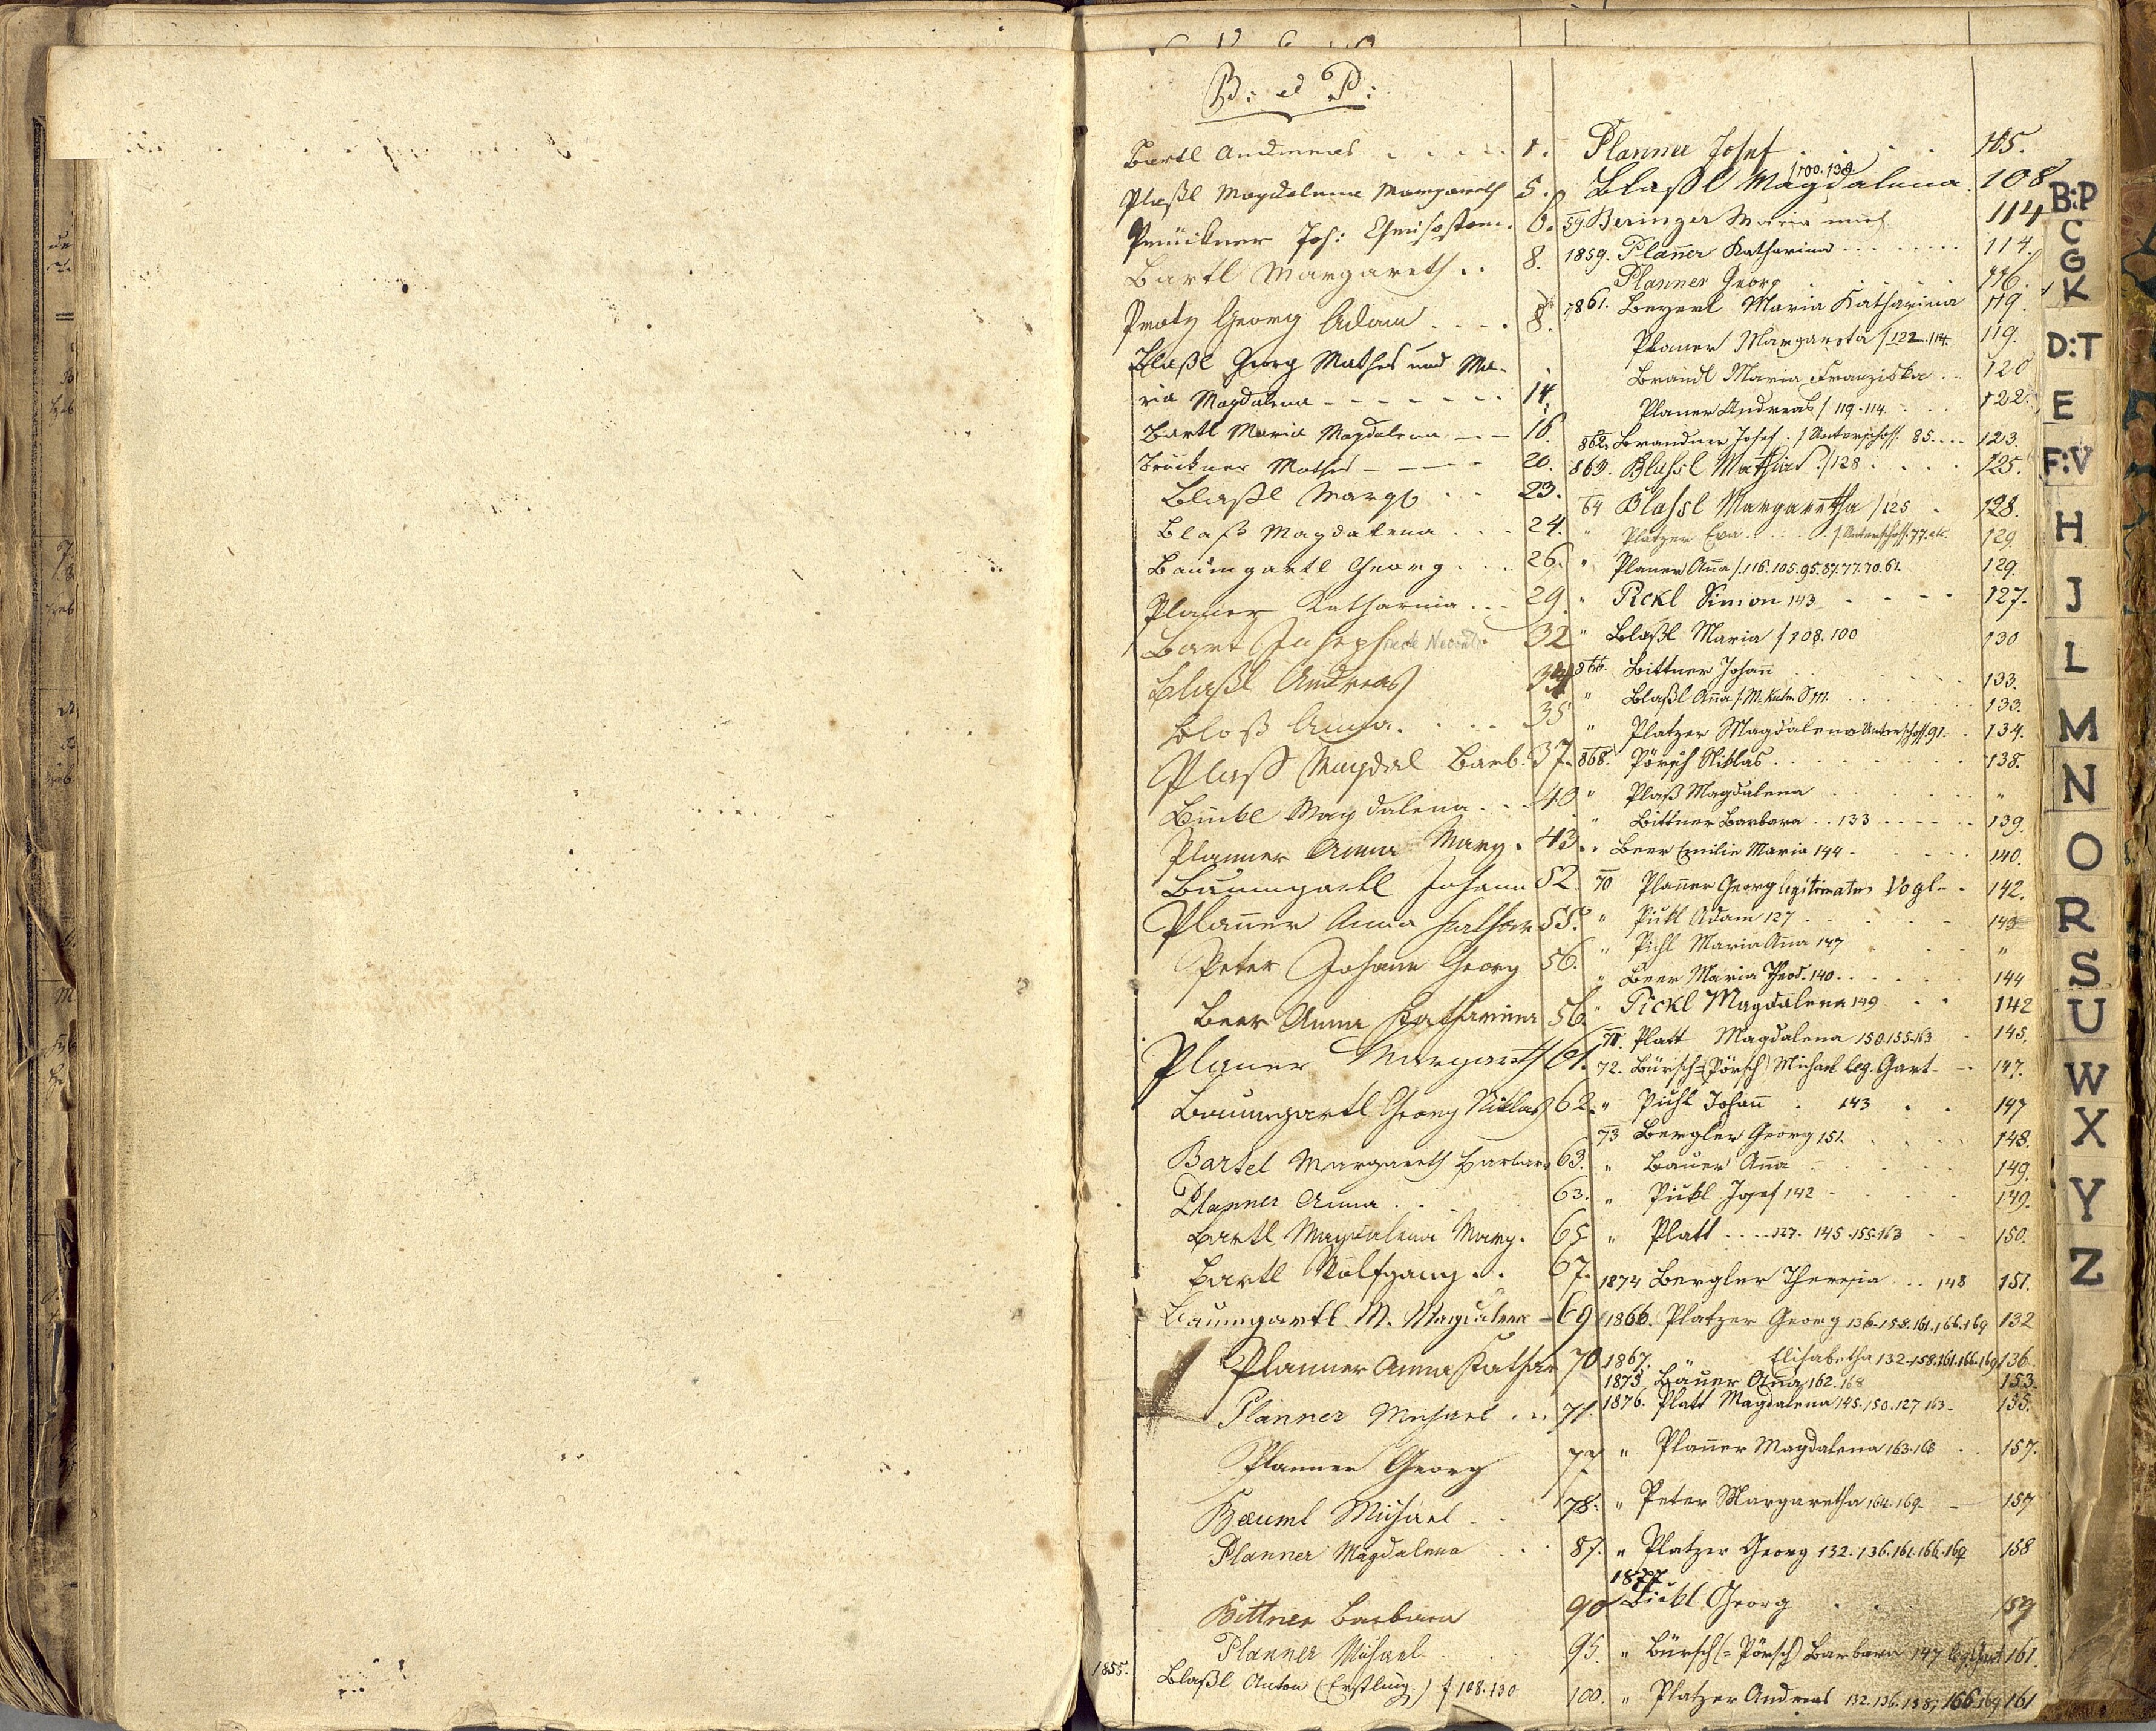 B: et P:
Bartl Andreas . . . . . 1.
Plaßl Magdalena Margareth 5.
Prückner Joh: Chrisostom. 6.
Bartl Margareth . . 8.
Georg Adam . . . . 8.
Blaßl Georg Mathes und Ma-
ria Magdalena - - - - - - - 14.
Bartl Maria Magdalena - - - 16.
Brückner Mathes - - - - - 20.
Blaßl Marg. . . 23.
Blaß Magdalena . . . 24.
Baumgartl Georg . . . 26.
Planer Katharina . . . 29.
Bartl Joseph 32
Blaßl Andreas 34
Bloß Anna . . . . 35
Plaß Magdal Barb. 37.
Magdalena . . . 40
Planner Anna Marg. 43.
Baumgartl Johann 52.
Plañer Anna Kathar 55.
Peter Johann Georg 56.
Beer Anna Katharina 56.
Planer Margareth 61.
Baumgartl Georg Niklas 62.
Bartel Margareth Barbara 63.
Planner Anna . . 63.
Bartl Magdalena Marg. 65
Bartl Wolfgang . . 67.
Baumgartl M. Magdalena - 69
Planner Anna Kathar 70
Planner Michael . . . 71.
Planner Georg 77
Bäuml Michael . . 78.
Planner Magdalena . . . 87.
Bittner Barbara 90
Planner Michael . . . . 95.
1855. Blaßl Anton (Erstling.) f 108.130 100.
Planner Josef . . . . . 105.
/100.130
Blaßl Magdalena . 108
59 Beringer Maria 114
1859. Plañer Katharina . . . . . . . . 114.
Planner Georg . . . . . . 116.
1861. Beyerl Maria Katharina 119.
Planer Margareta / 122.114. 119.
Brandl Maria Franziska . . 120
Planer Andreas / 119.114. . . . 122.
862. Brandner Josef . / Unterschoss. 85 . . . . 123.
863. Blassl Mathias ./128 . . . . . 125.
64 Blassl Margaretha / 125 . 128.
" Platzer Eva . . . . . / Unterschoss. 77. etc. 129.
" Planer Aña /.116.105.95.87.77.70.61. 129.
" Pickl Simon 143 . . . . 127.
" Blaßl Maria / 108.100 130
866. Bittner Johañ . . . . . . 133.
" Blaßl Aña /. . . . . . . . . 133.
" Platzer Magdalena Unterschoss. 91. . 134.
868. Pörsch Niklas . . . . . . . . . 138.
" Plaß Magdalena . . . . . . . "
" Bittner Barbara . . 133 . . . . . . 139.
" Beer Emilie Maria 144 - . . . . . . 140.
70 Plañer Georg legitimatus Vogl - . 142.
" Pickl Adam 127 . . . . . . . 143
" Pichl Maria Aña 147 . . . . "
" Beer Maria Theod. 140 . . . . . . 144
" Pickl Magdalena 149 . . . 142
71. Platt Magdalena 150.155.163 . 145.
72. Bürsch=(Pörsch) Michael leg. Gart - . 147.
" Pichl Johañ . 143 . . 147
73 Bergler Georg 151. . . . . 148.
" Bauer Aña . . . . . . 149.
" Pickl Josef 142 - . . . . 149.
" Platt . . . . 127. 145.155.163 . - 150.
1874 Bergler Theresia . . 148 151.
1866. Platzer Georg 136.158.161.166.169 132
1867. " Elisabetha 132.158.161.166.169 136.
1875 Bauer Aña 162.168 153.
1876. Platt Magdalena 145.150.127 163 - 155.
" Plañer Magdalena 163.168 . . 157.
" Peter Margaretha 164.169 - - 157
" Platzer Georg 132.136.161.166.169 158
1877
Pickl Georg . . . 159
" Bürsch (=Pörsch) Barbara 147 leg. Gart 161.
" Platzer Andreas 132.136.158, 166.169 161
B:P
C
G
K
D:T
E
F:V
H
J
L
M
N
O
R
S
U
W
X
Y
Z